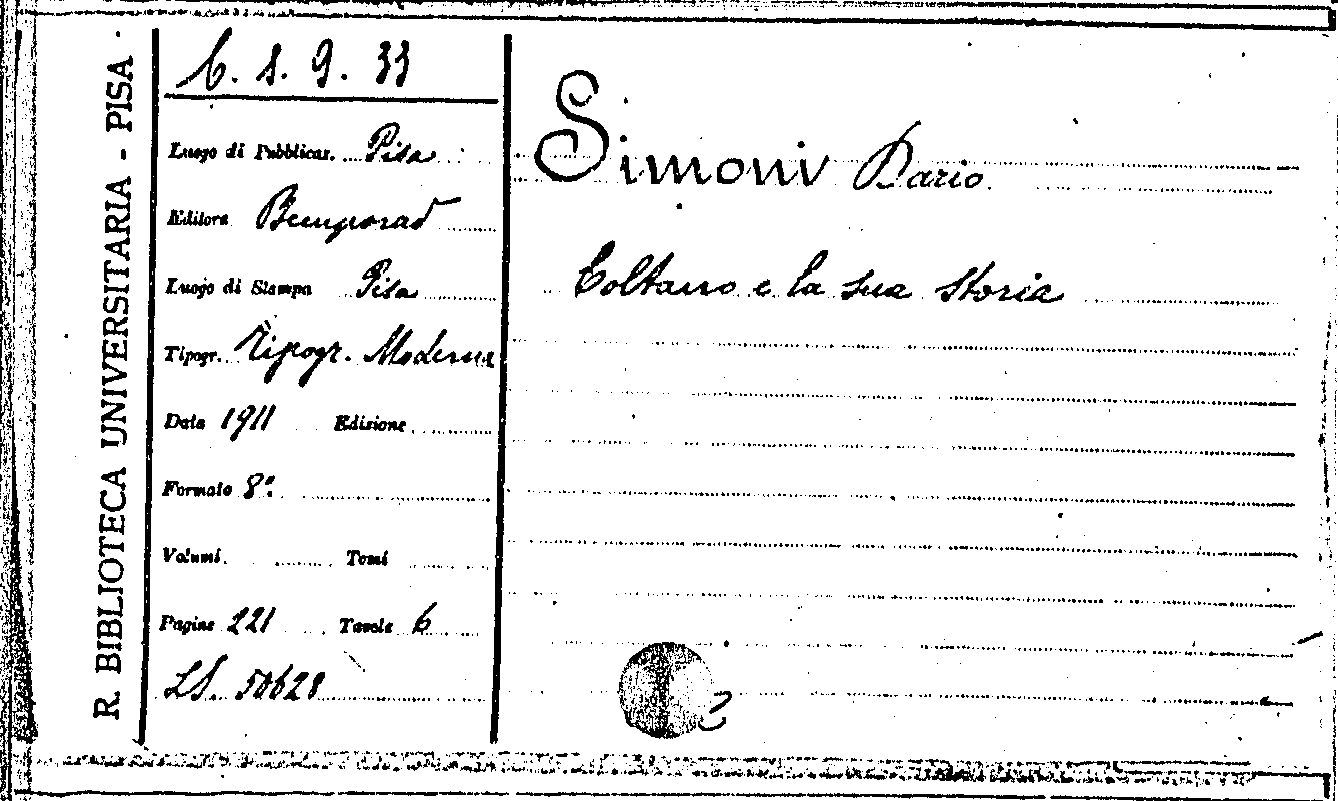 R. BIBLIOTECA UNIVERSITARIA - PISA
6. 8. 9. 33
Luogo di Pubblicaz. Pisa
Editore Bemporad
Luogo di Stampa Pisa
Tipogr. Tipogr. Moderna
Data 1911 Edizione
Formato 8º
Volumi Tomi
Pagine 221 Tavole 6
LS. 50628
Simoni Dario
Coltano e la sua storia